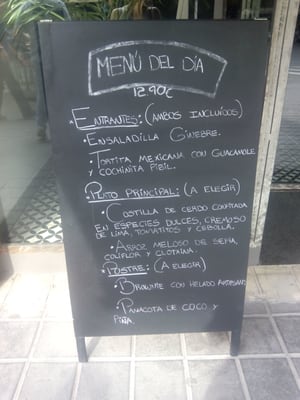 MENÚ DEL DÍA
12.90€
• ENTRANTES: (AMBOS INCLUÍDOS)
• ENSALADILLA GINEBRE.
• TORTITA MEXICANA CON GUACAMOLE
Y COCHINITA PIBIL.
PLATO PRINCIPAL: (A ELEGIR)
• COSTILLA DE CERDO CONFITADA
EN ESPECIES DULCES, CREMOSO
DE LIMA, TOMATITOS Y CEBOLLA.
• ARROZ MELOSO DE SEPIA,
COLIFLOR Y CLOTXINA.
POSTRE: (A ELEGIR)
• BROWNIE CON HELADO
• PANACOTA DE COCO Y
PIÑA.